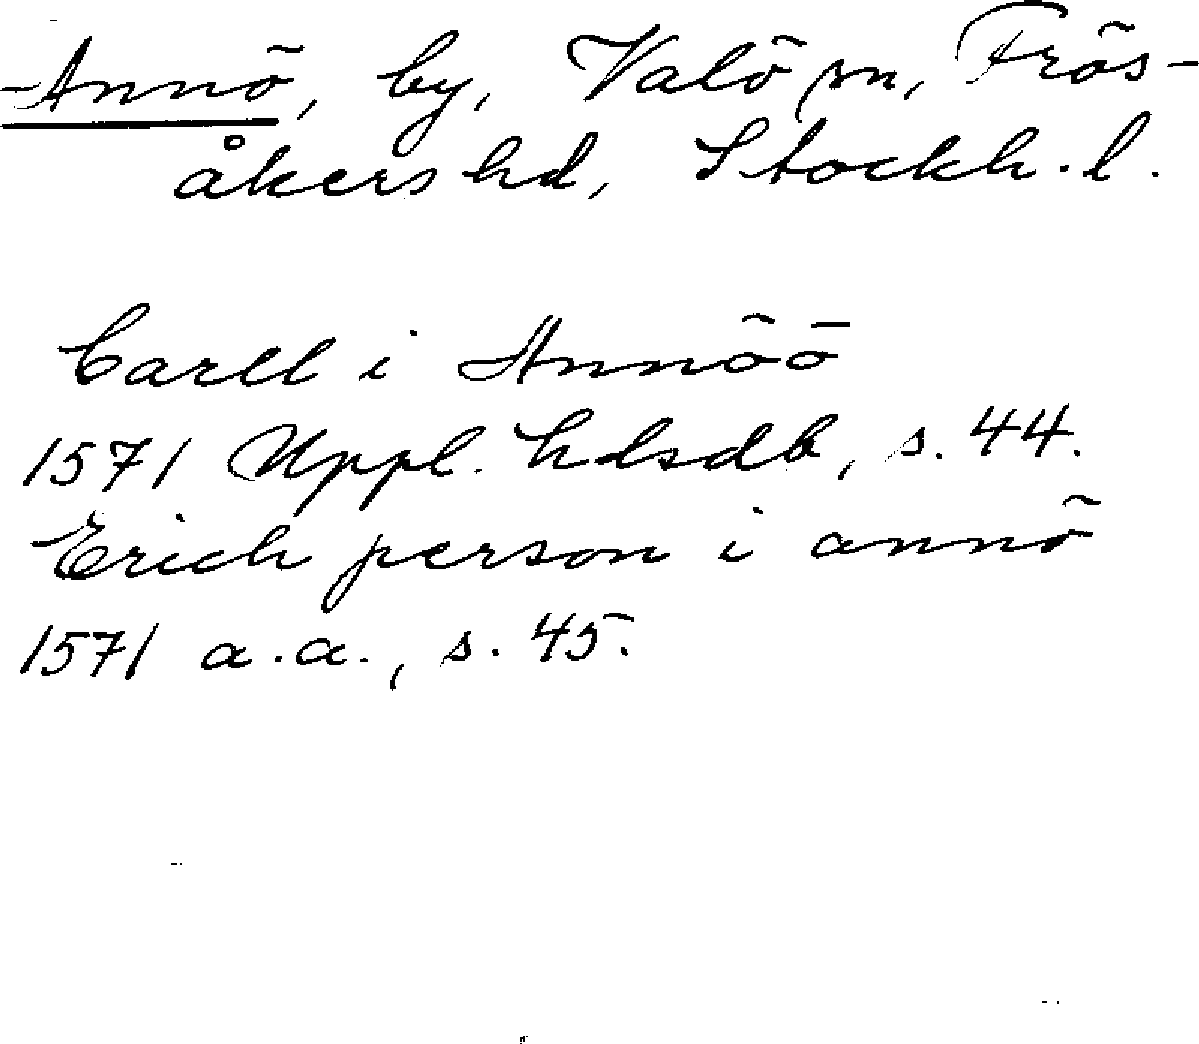 Annö, by, Valö sn, Frös-
åkers hd, Stockh. l.
Carll i Annöö
1571 Uppl. hdsdb, s. 44.
Erich person i annö
1571 a.a., s. 45.